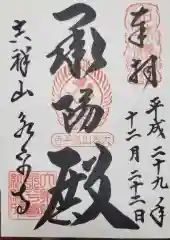 奉拝
平成二十九年
十二月二十二日
承陽殿
吉祥山永平寺